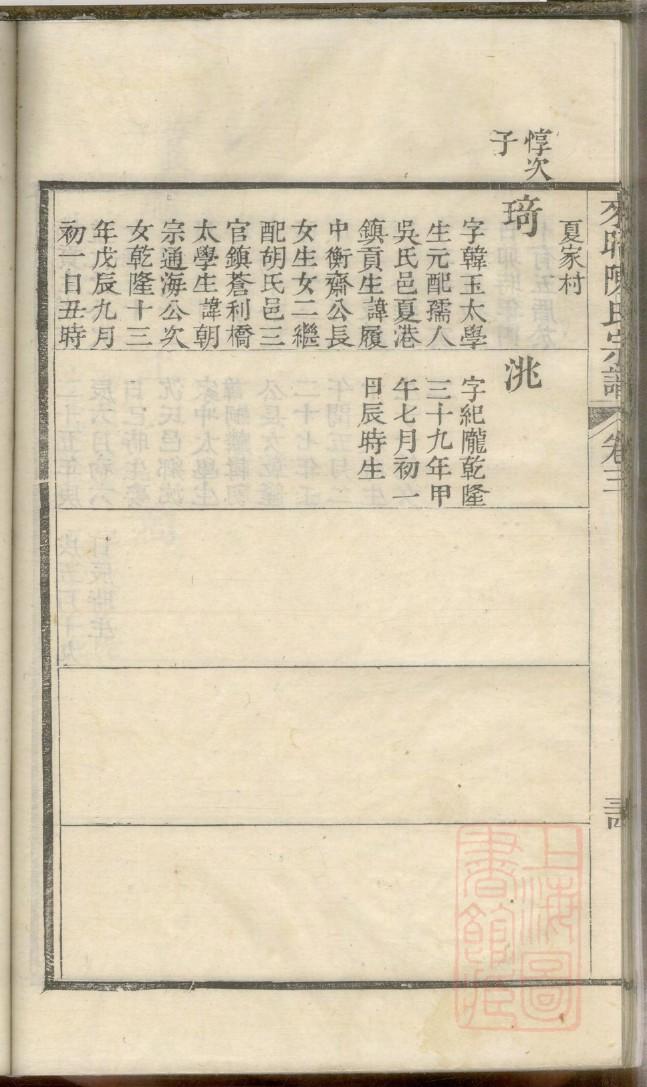 陳氏宗譜
卷三
惇次
子
夏家村
琦
字韓玉太學
生元配孺人
吳氏邑夏港
鎮貢生諱履
中衡齋公長
女生女二繼
配胡氏邑三
官鎮蒼利橋
太學生諱朝
宗通海公次
女乾隆十三
年戊辰九月
初一日丑時
洮
字紀隴乾隆
三十九年甲
午七月初一
日辰時生
上海圖
書館藏